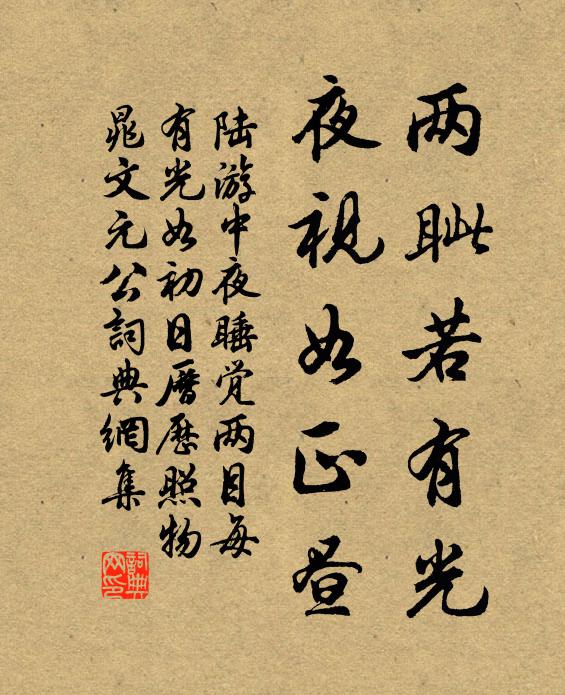 两眦若有光
夜视如正昼
陆游中夜睡觉两目每
有光如初日历历照物
晁文元公詞典網集
詞典
网印